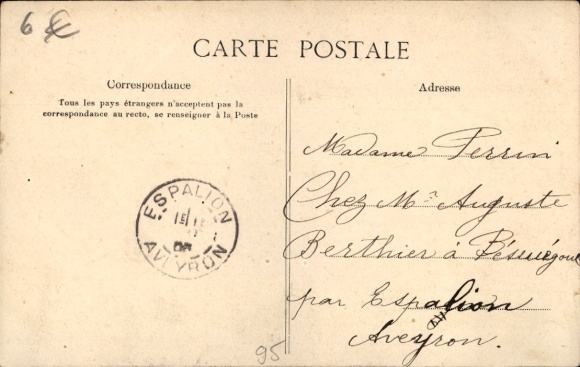 6 €
CARTE POSTALE
Correspondance
Tous les pays étrangers n'acceptent pas la
correspondance au recto, se renseigner à la Poste
Adresse
Madame Perrin
Chez Mr Auguste
Berthier à Bésuéjoul
par Espalion
Aveyron.
ESPALION
AVEYRON
95